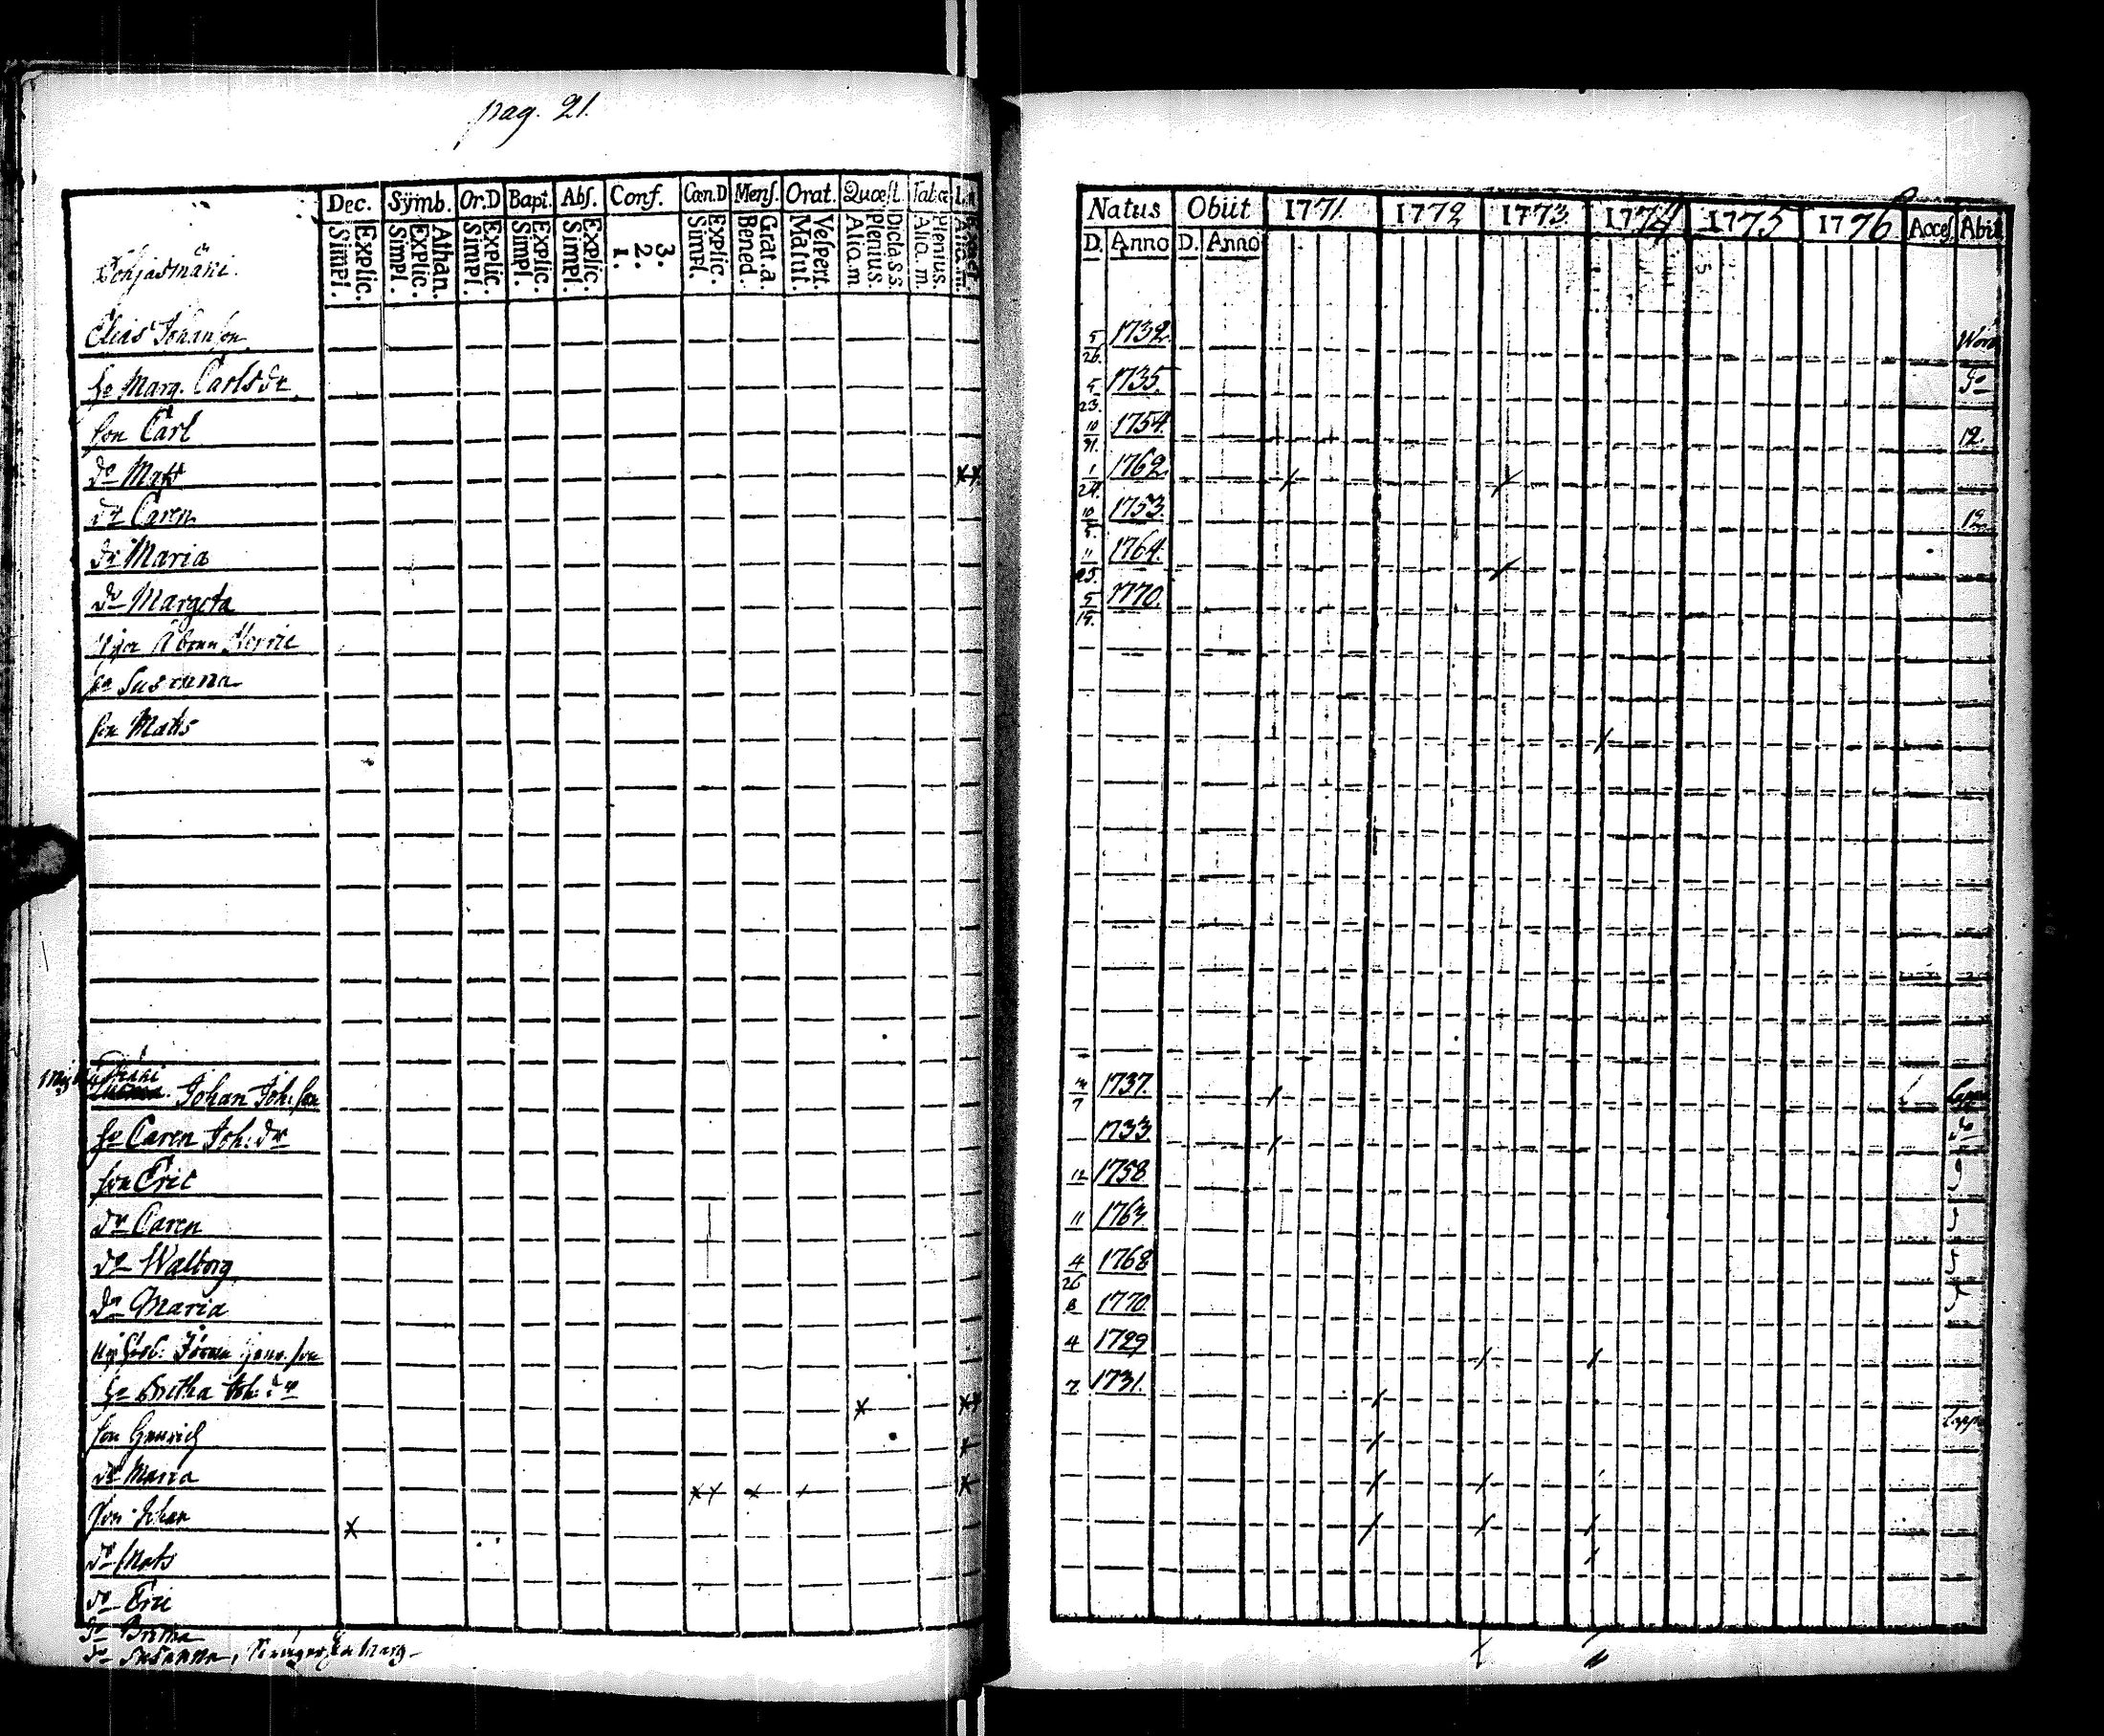 pag. 21.
Dec. Sÿmb. Or.D Bapt. Abs. Conf. Cœn.D Mens. Orat. Quæst. Tab.œ
Simpl. Explic. Simpl. Explic. Athan. Simpl. Explic. Simpl. Explic. Simpl. Explic. 1. 2. 3. Simpl. Explic. Bened. Grat.a. Matut. Vespert. Alio.m Plenius. Dicta S.S. Alio.m. Plenius.
Natus Obiit 1771. 1772 1773. 1774 1775 1776 Acces. Abiit
D. Anno D. Anno
Elias Johanson 5/26. 1732.
hu Marg. Carlsdr 5/23. 1735. do
son Carl 10/31. 1754. 12.
do Matts 1/24. 1762.
dr Caren 10/5. 1753. 12.
dr Maria 11/25. 1764.
dr Margeta 5/19. 1770.
hu Susanna
son Matts
Johan Joh:son 7 1737.
hu Caren Joh:dr 1733.
son Eric 12 1758.
dr Caren 11 1763
dr Walborg 4/26 1768
dr Maria 8 1770.
4 1729
hu Britha Joh:dr 7. 1731.
son Henrich
dr Maria
son Johan
do Mats
do Eric
dr Britha
dr Susanna,